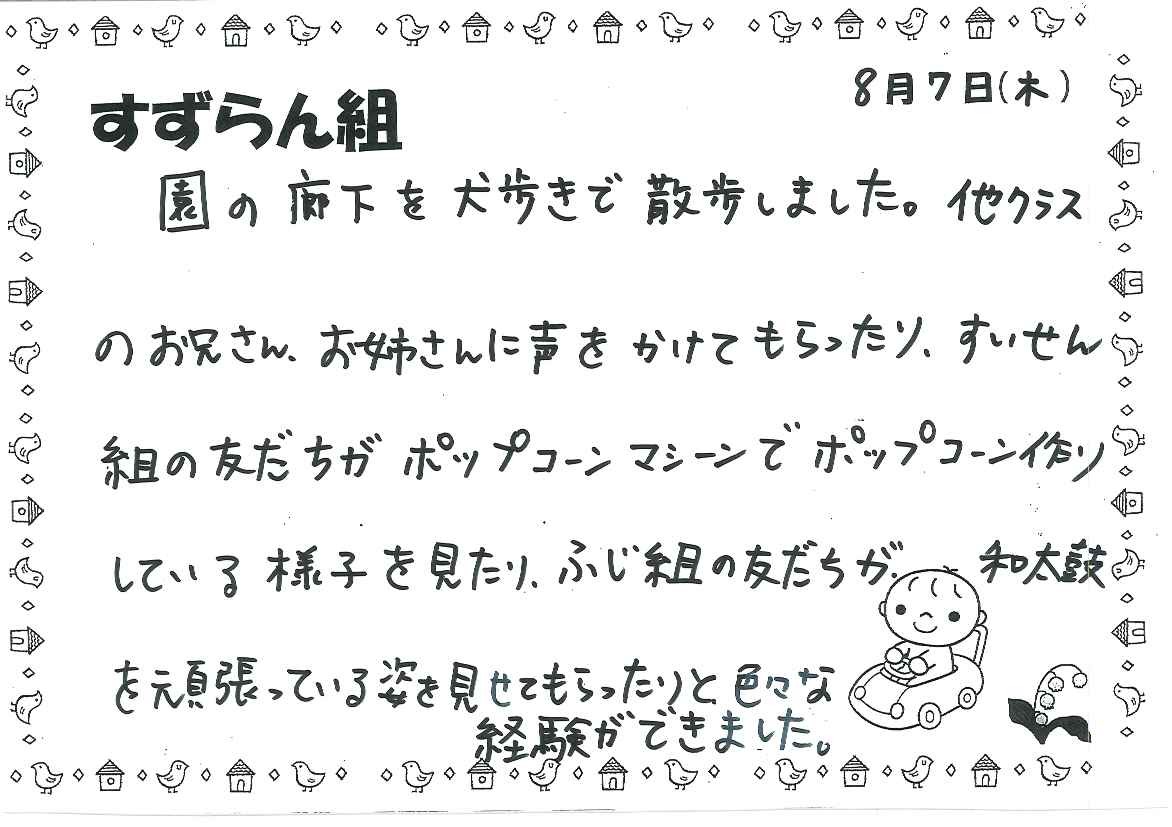 8月7日(木)
すずらん組
園の廊下を犬歩きで散歩しました。他クラス
のお兄さん、お姉さんに声をかけてもらったり、すいせん
組の友だちがポップコーンマシーンでポップコーン作り
している様子を見たり、ふじ組の友だちが、和太鼓
を頑張っている姿を見せてもらったりと色々な
経験ができました。